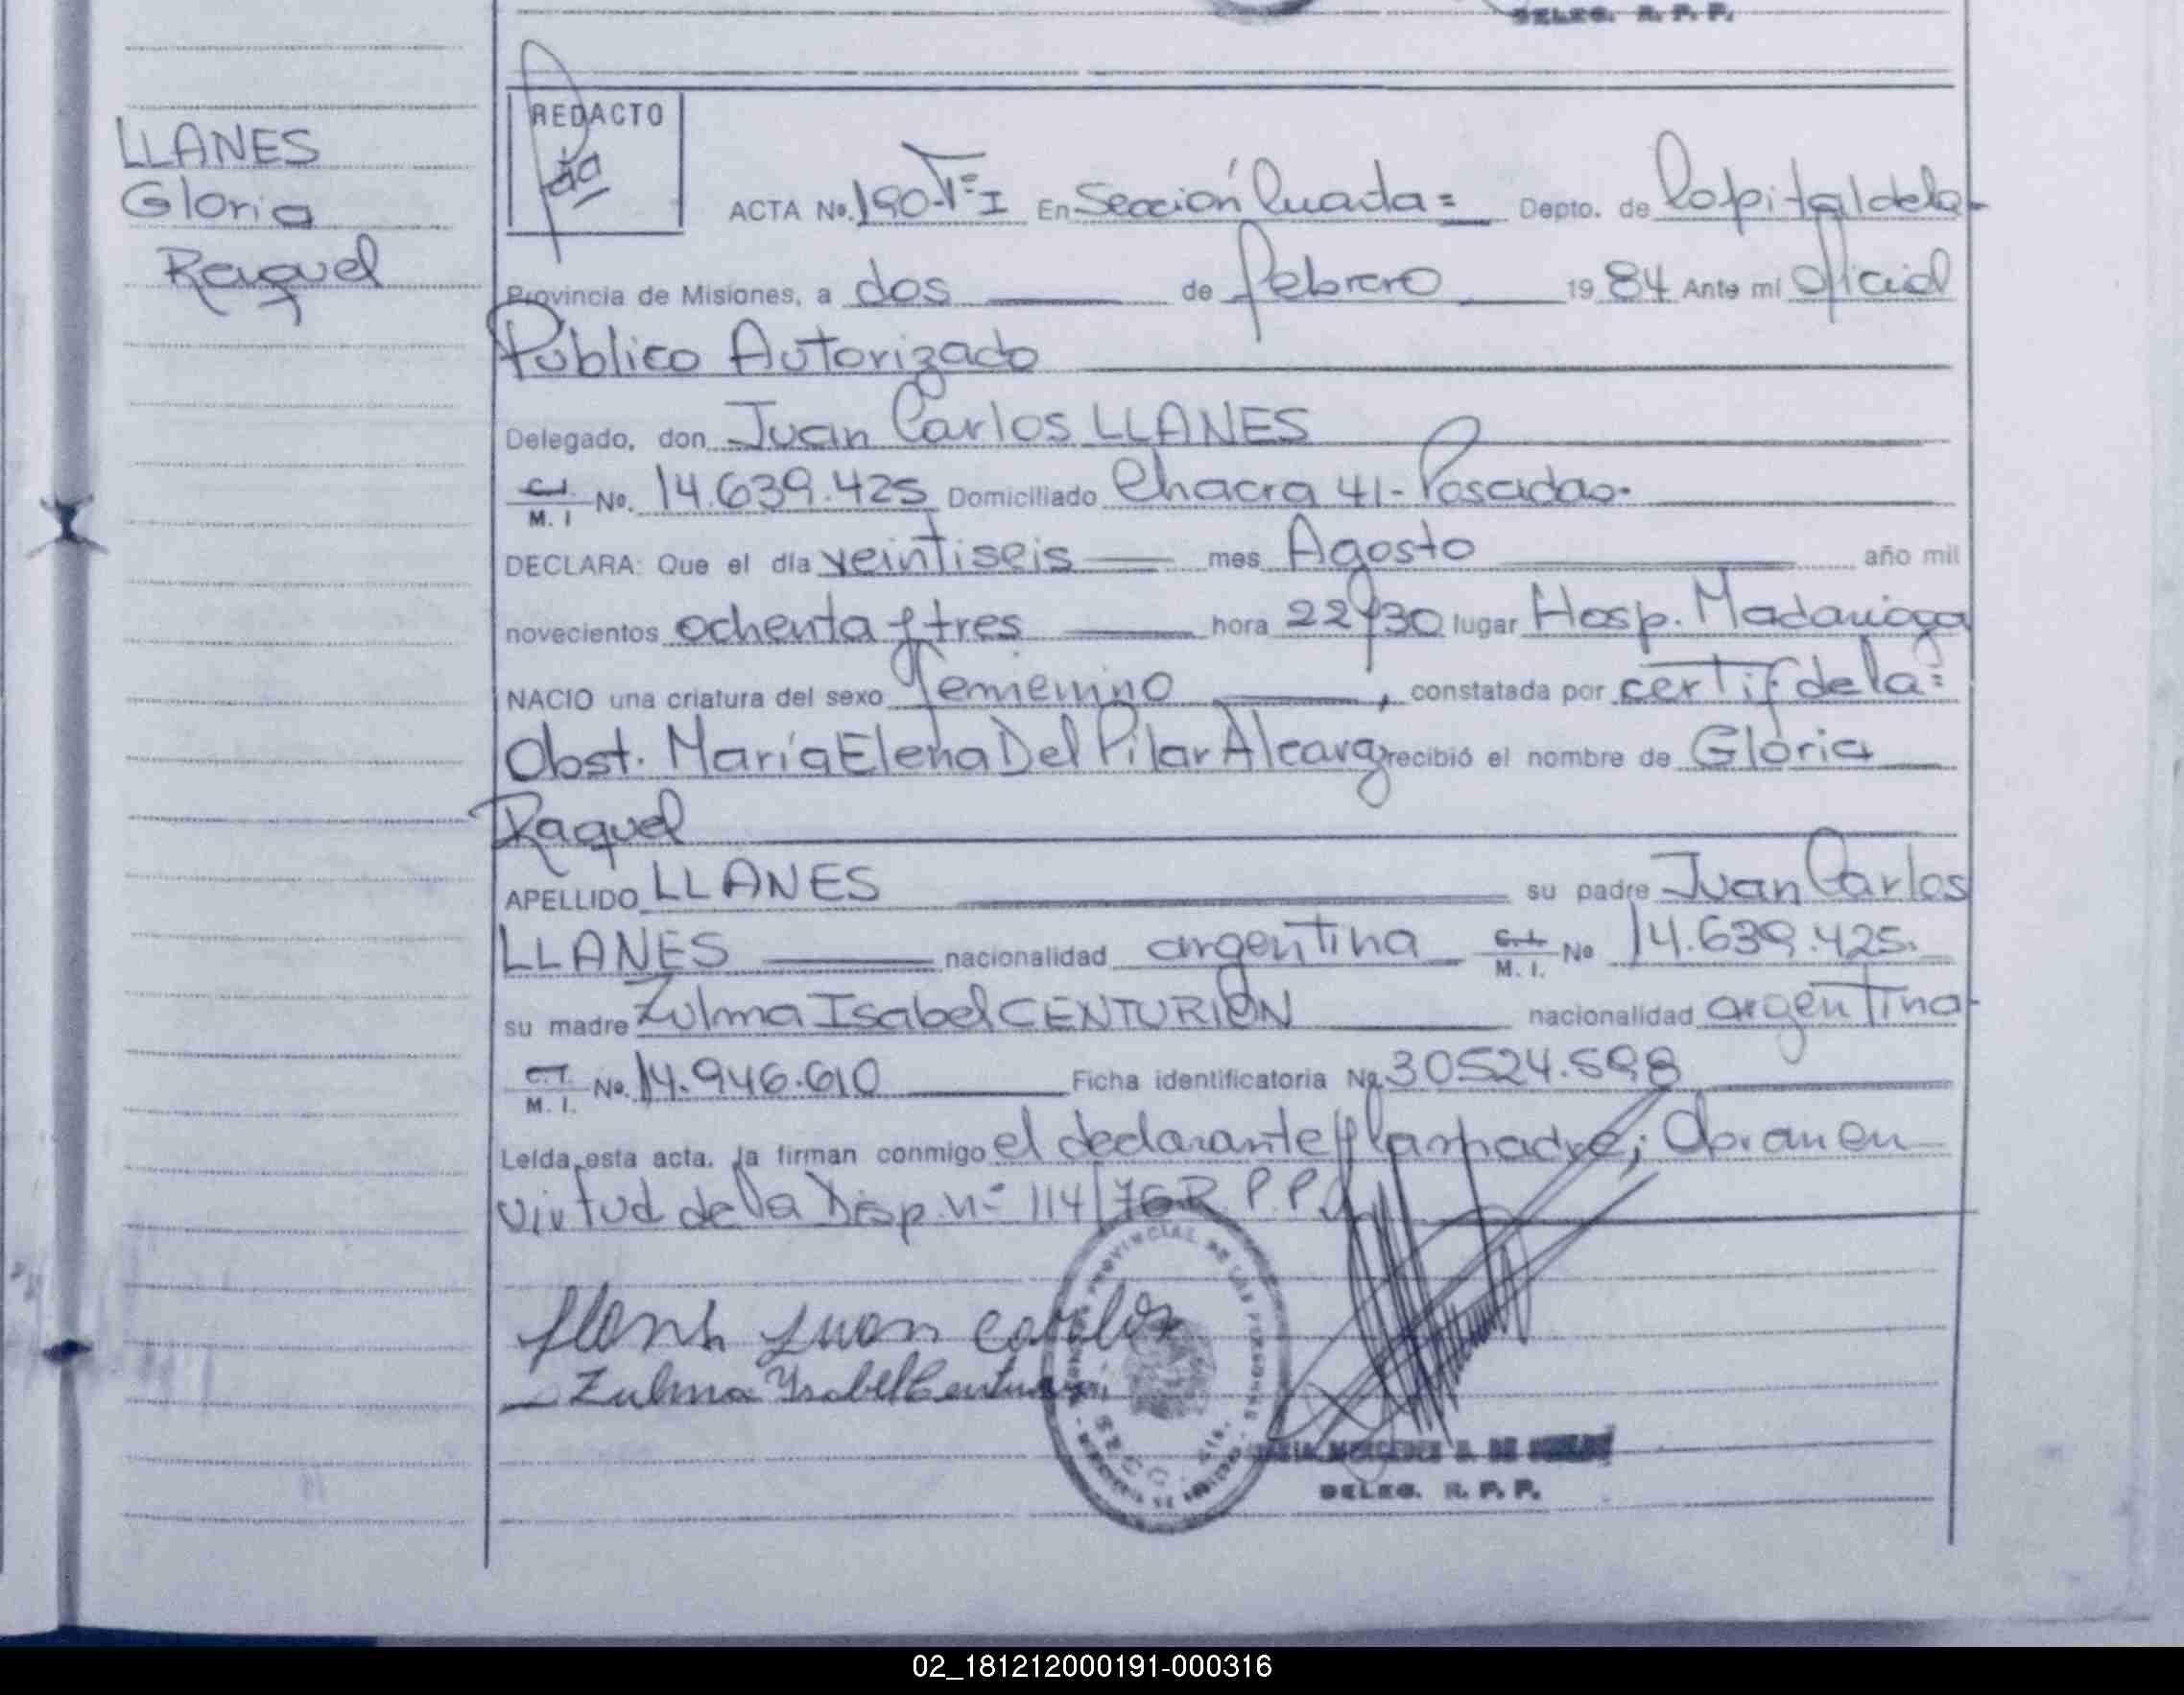 DELEG. R. P. P.
LLANES
Gloria
Raquel
REDACTO
ACTA No. 190-Tº I En Sección Cuarta = Depto. de Capital de la
Provincia de Misiones, a dos de febrero 1984 Ante mi Oficial
Público Autorizado
Delegado, don Juan Carlos LLANES
C.I. M. I No. 14.639.425 Domiciliado Chacra 41- Posadas.
DECLARA: Que el día veintiseis mes Agosto año mil
novecientos ochenta y tres hora 22y30 lugar Hosp. Madariaga
NACIO una criatura del sexo femenino, constatada por certif de la =
Obst. María Elena Del Pilar Alcaraz recibió el nombre de Gloria
Raquel
APELLIDO LLANES su padre Juan Carlos
LLANES nacionalidad argentina C.I. M. I. No 14.639.425.
su madre Zulma Isabel CENTURION nacionalidad argentina
C.I. M. I. No. 14.946.610 Ficha identificatoria No. 30524.598
Leída esta acta, la firman conmigo el declarante y la madre; Obran en
virtud de la Disp. nº 114/76 R.P.P.
Llanes Juan Carlos
Zulma Ysabel Centurion
PROVINCIAL DE LAS PERSONAS
MERCEDES DE
DELEG. R. P. P.
02_181212000191-000316